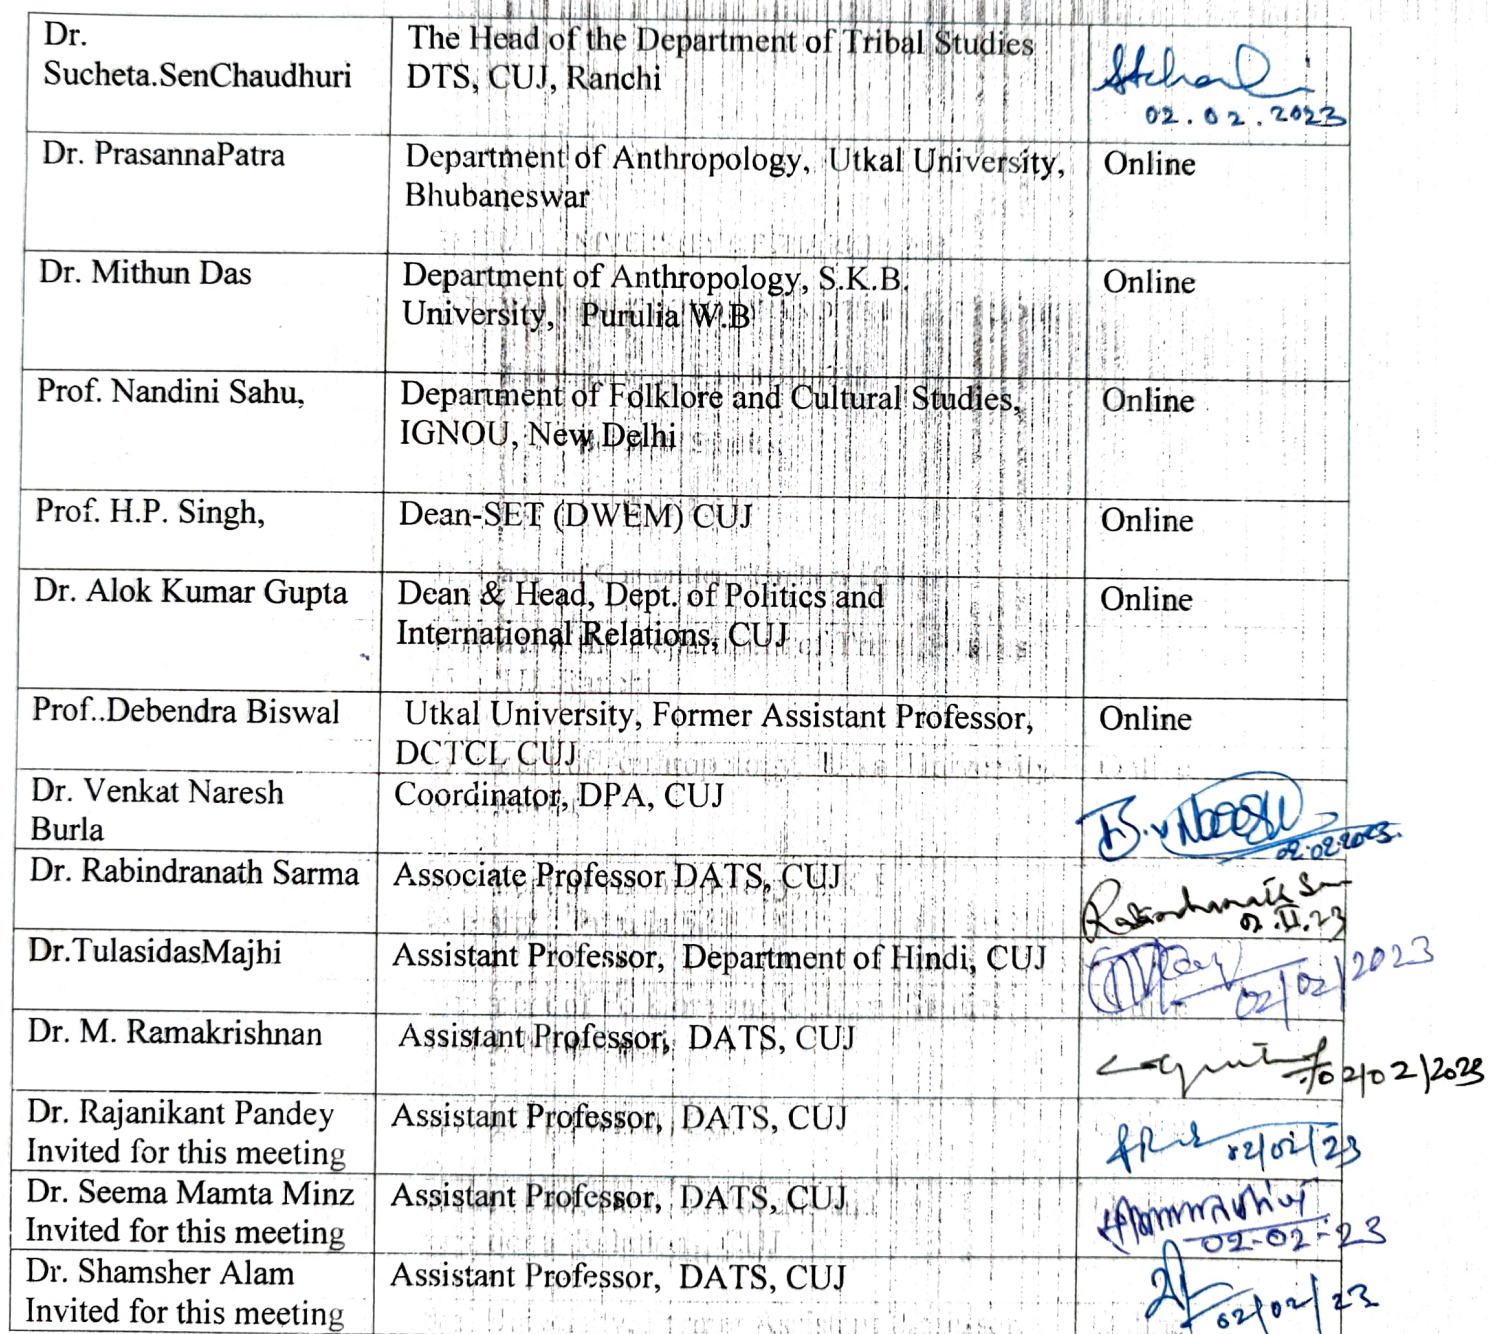 Dr.
Sucheta.SenChaudhuri
The Head of the Department of Tribal Studies
DTS, CUJ, Ranchi
02.02.2023
Dr. PrasannaPatra
Department of Anthropology, Utkal University,
Bhubaneswar
Online
Dr. Mithun Das
Department of Anthropology, S.K.B.
University, Purulia W.B
Online
Prof. Nandini Sahu,
Department of Folklore and Cultural Studies,
IGNOU, New Delhi
Online
Prof. H.P. Singh,
Dean-SET (DWEM) CUJ
Online
Dr. Alok Kumar Gupta
Dean & Head, Dept. of Politics and
International Relations, CUJ
Online
Prof..Debendra Biswal
Utkal University, Former Assistant Professor,
DCTCL CUJ
Online
Dr. Venkat Naresh
Burla
Coordinator, DPA, CUJ
02.02.2023.
Dr. Rabindranath Sarma
Associate Professor DATS, CUJ
02.II.23
Dr.TulasidasMajhi
Assistant Professor, Department of Hindi, CUJ
02/02/2023
Dr. M. Ramakrishnan
Assistant Professor, DATS, CUJ
02/02/2023
Dr. Rajanikant Pandey
Invited for this meeting
Assistant Professor, DATS, CUJ
02/02/23
Dr. Seema Mamta Minz
Invited for this meeting
Assistant Professor, DATS, CUJ
02-02-23
Dr. Shamsher Alam
Invited for this meeting
Assistant Professor, DATS, CUJ
02/02/23